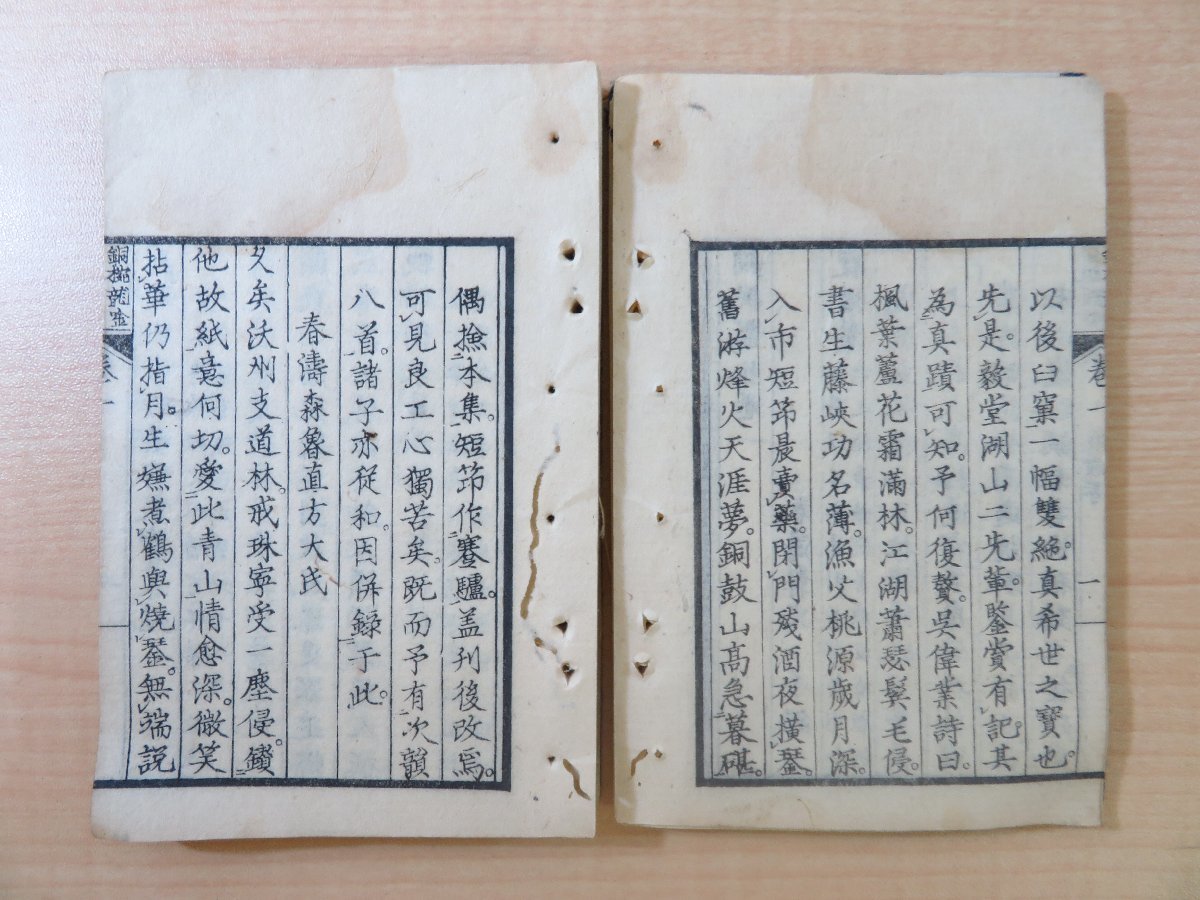 以後臼窠一幅雙絶。真希世之寶也。
先是。毅堂湖山二先輩。鑒賞有記。其
為真蹟可知。予何復贅。吳偉業詩曰。
楓葉蘆花霜滿林。江湖蕭瑟鬂毛侵。
書生藤峽功名薄。漁父桃源歲月深。
入市短笻晨賣藥。閉門殘酒夜橫琴。
舊游烽火天涯夢。銅鼓山高急暮砧。
卷一
一
偶撿本集。短笻作蹇驢。盖刊後改焉。
可見良工心獨苦矣。既而予有次韻
八首。諸子亦從和。因併錄于此。
春濤森魯直方大氏
久矣沃州支道林。戒珠寧受一塵侵。鑽
他故紙意何切。愛此青山情愈深。微笑
拈華仍指月。生嫌煮鶴與燒琴。無端説
卷一